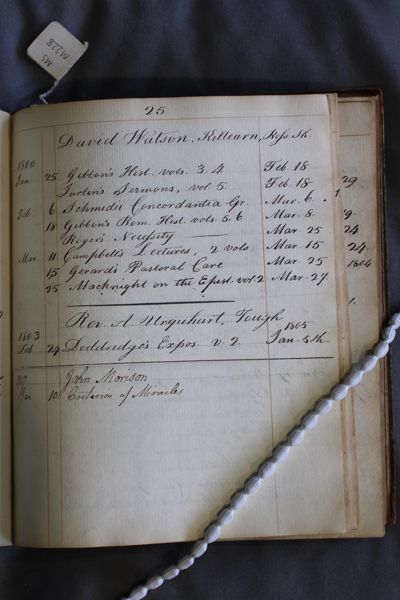 MS
M 228
25
David Watson. Killearn, Ross Sh.
1800
Jan. 25 Gibbon's Hist. vols 3. 4 Feb. 18
Jortin's Sermons, vol 5. Feb. 18
Feb. 6 Schmidii Concordantia Gr. Mar. 6.
18 Gibbon's Rom. Hist. vols 5. 6 Mar. 8.
Roger's Necessity Mar 25
Mar. 11 Campbell's Lectures, 2 vols Mar 15
15 Gerard's Pastoral Care Mar. 25
25 Macknight on the Epist. vol. 2 Mar 27.
Rev. A. Urquhart, Tough
1803 1805
Feb 24. Doddridge's Expos. v. 2. Jan. 5th
John Morison
10 Criterion of Miracles
29
1.
9.
24
24.
1804
1.